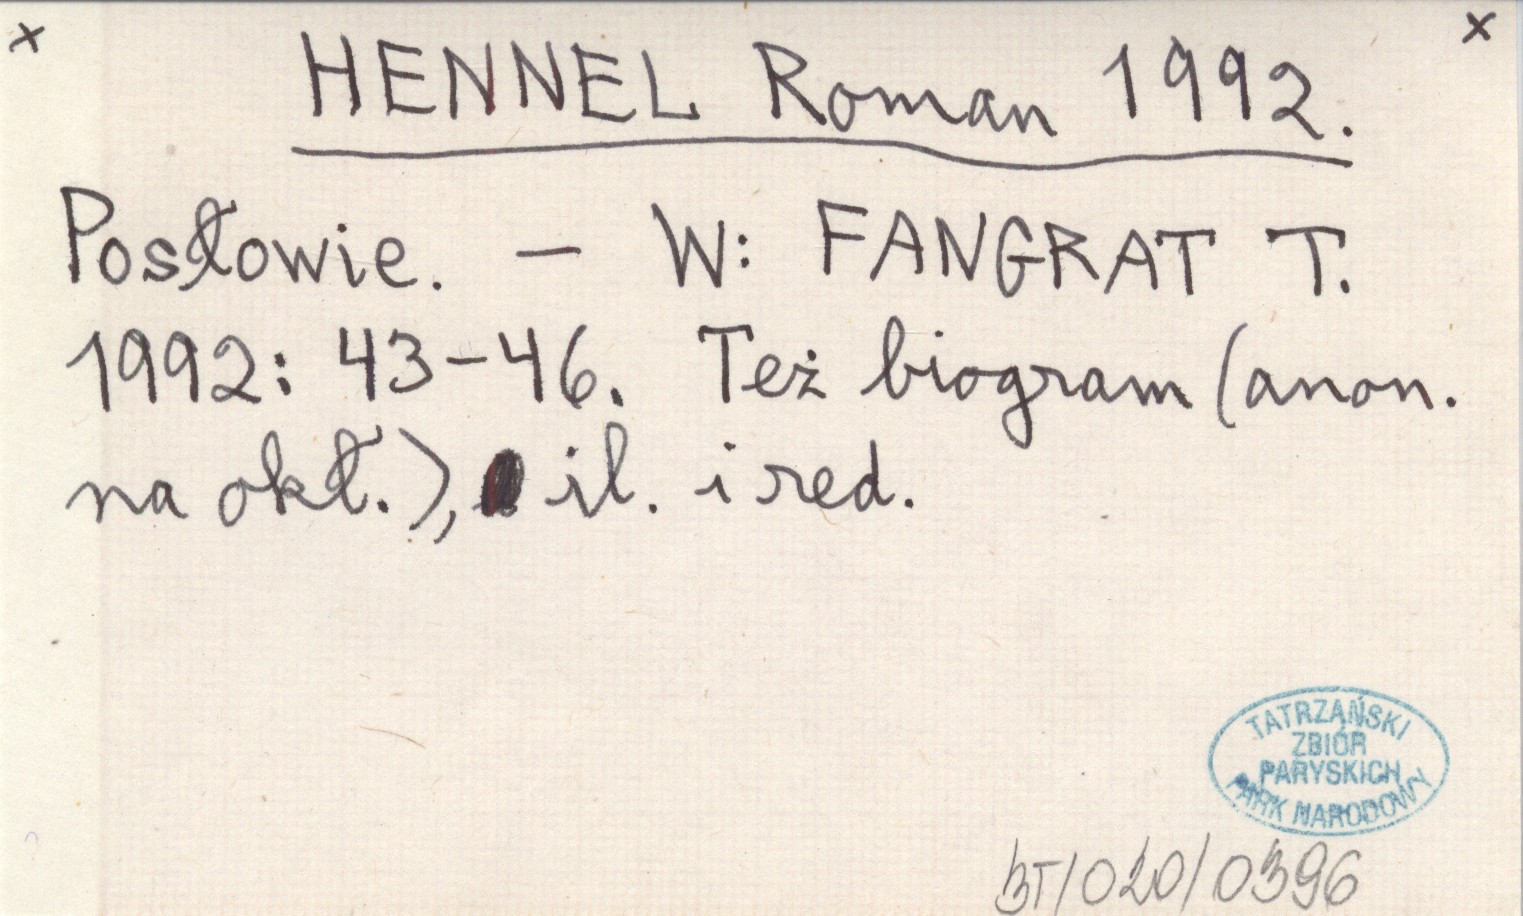 x HENNEL Roman 1992. x
Posłowie. – W: FANGRAT T.
1992: 43–46. Też biogram (anon.
na okł.), il. i red.
TATRZAŃSKI
ZBIÓR
PARYSKICH
PARK NARODOWY
BT/020/0396